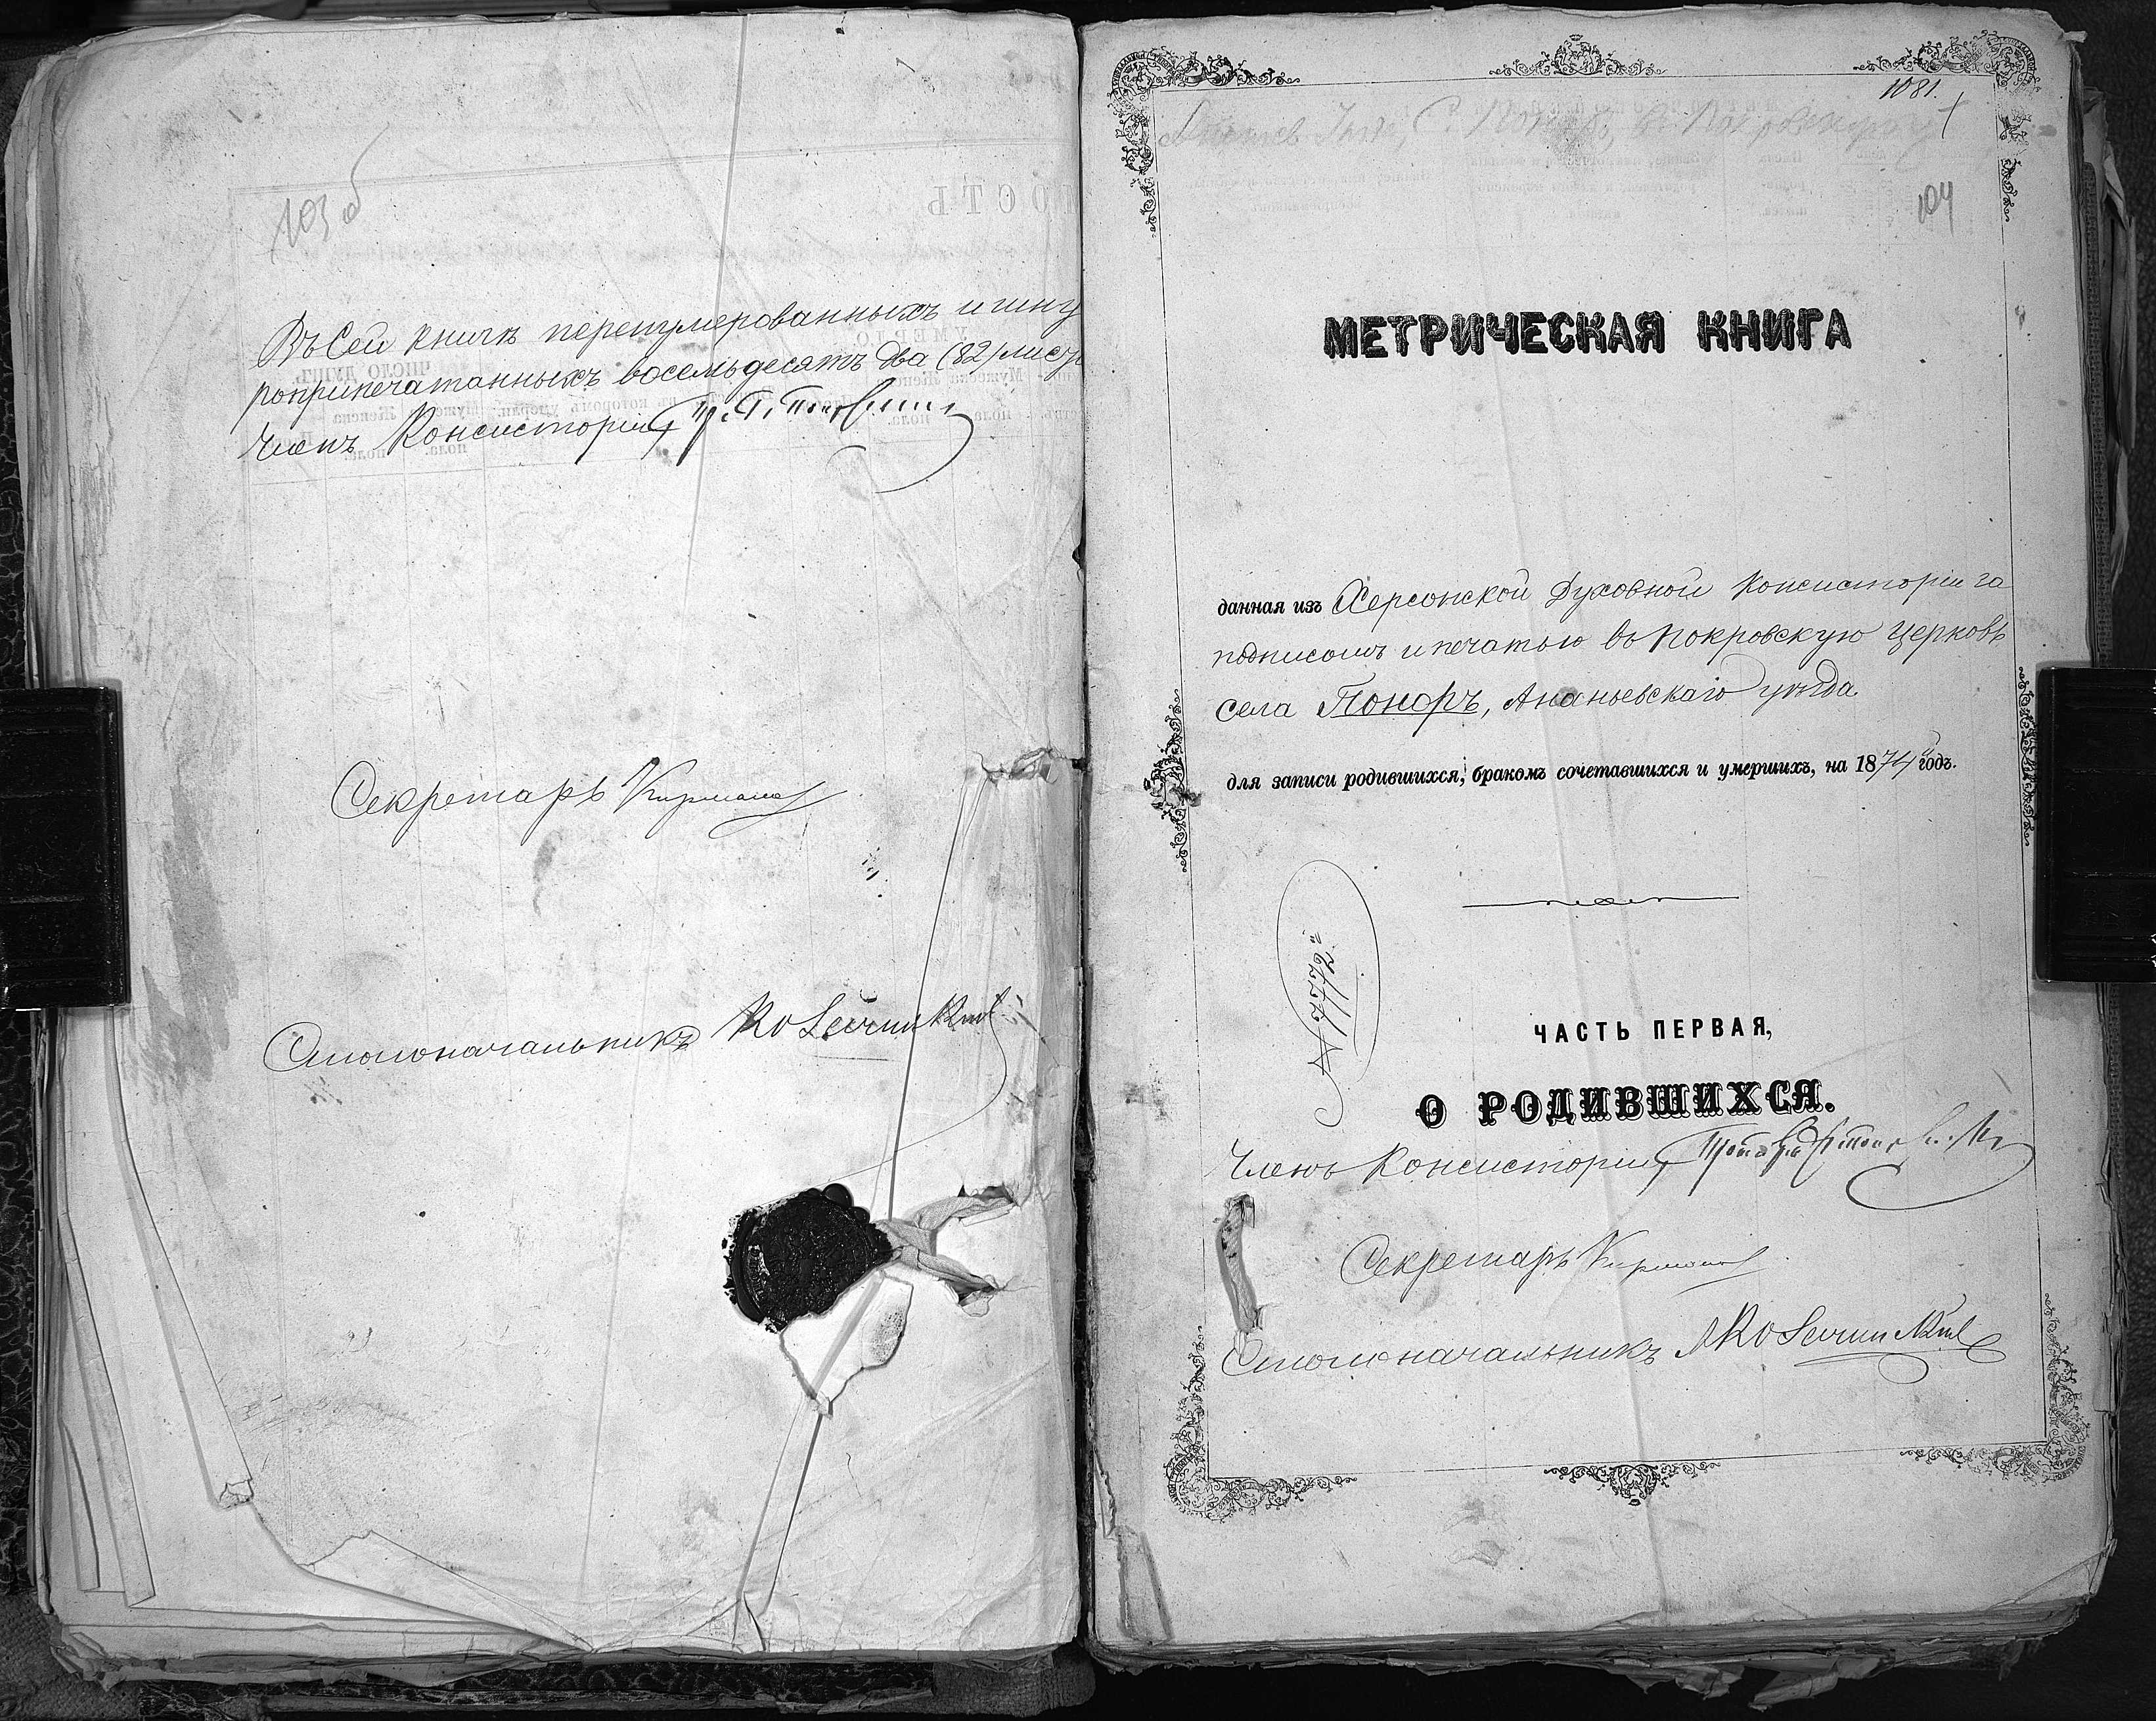 103 об
Въ сей книгѣ перенумерованныхъ и шну
роприпечатанныхъ восемьдесятъ два (82) листа
Членъ Консисторіи,
Секретарь
Столоначальникъ
1081.
104
МЕТРИЧЕСКАЯ КНИГА
данная изъ Херсонской Духовной Консисторіи за
подписомъ и печатью въ Покровскую церковь
села Поноръ, Ананьевскаго уѣзда.
для записи родившихся, бракомъ сочетавшихся и умершихъ, на 1874й годъ.
№ 7772й
ЧАСТЬ ПЕРВАЯ,
О РОДИВШИХСЯ.
Членъ Консисторіи,
Секретарь
Столоначальникъ